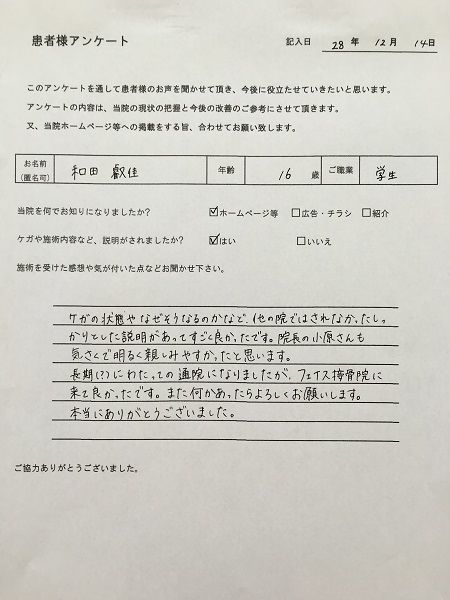 患者様アンケート
記入日 28 年 12 月 14 日
このアンケートを通して患者様のお声を聞かせて頂き、今後に役立たせていきたいと思います。
アンケートの内容は、当院の現状の把握と今後の改善のご参考にさせて頂きます。
又、当院ホームページ等への掲載をする旨、合わせてお願い致します。
お名前(匿名可) 和田 叡佳 年齢 16 歳 ご職業 学生
当院を何でお知りになりましたか? ☑ホームページ等 □広告・チラシ □紹介
ケガや施術内容など、説明がされましたか? ☑はい □いいえ
施術を受けた感想や気が付いた点などお聞かせ下さい。
ケガの状態やなぜそうなるのかなど、他の院ではされなかったしっ
かりとした説明があってすごく良かったです。院長の小原さんも
気さくで明るく親しみやすかったと思います。
長期(?)にわたっての通院になりましたが、フェイス接骨院に
来て良かったです。また何かあったらよろしくお願いします。
本当にありがとうございました。
ご協力ありがとうございました。